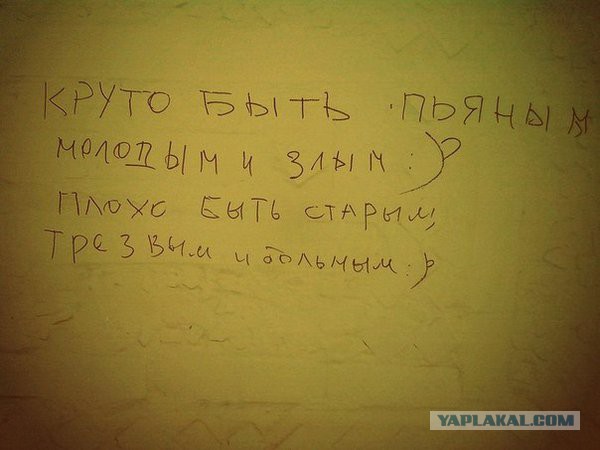 КРУТО БЫТЬ ПЬЯНЫМ
МОЛОДЫМ И ЗЛЫМ :)
ПЛОХО БЫТЬ СТАРЫМ,
ТРЕЗВЫМ И БОЛЬНЫМ :)
YAPLAKAL.COM